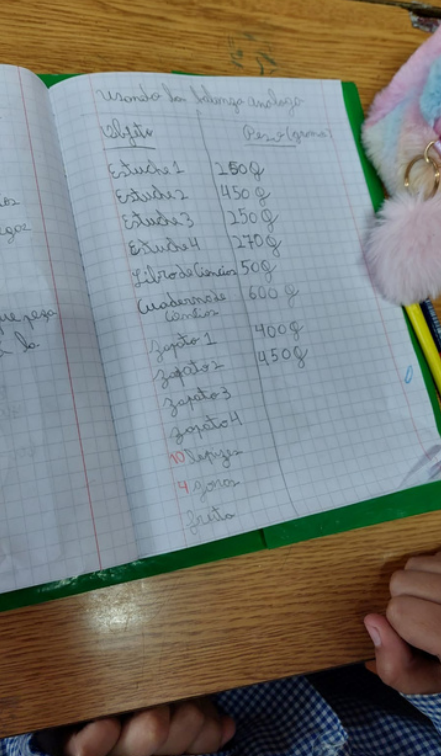 Usando la balanza analoga
Objeto Peso (gramos)
Estuche 1 250g
Estuche 2 450g
Estuche 3 250g
Estuche 4 270g
Libro de Ciencias 50g
Cuaderno de Ciencias 600g
Zapato 1 400g
Zapato 2 450g
Zapato 3
Zapato 4
10 lapizes
4 gomas
fruta
que pesa
la